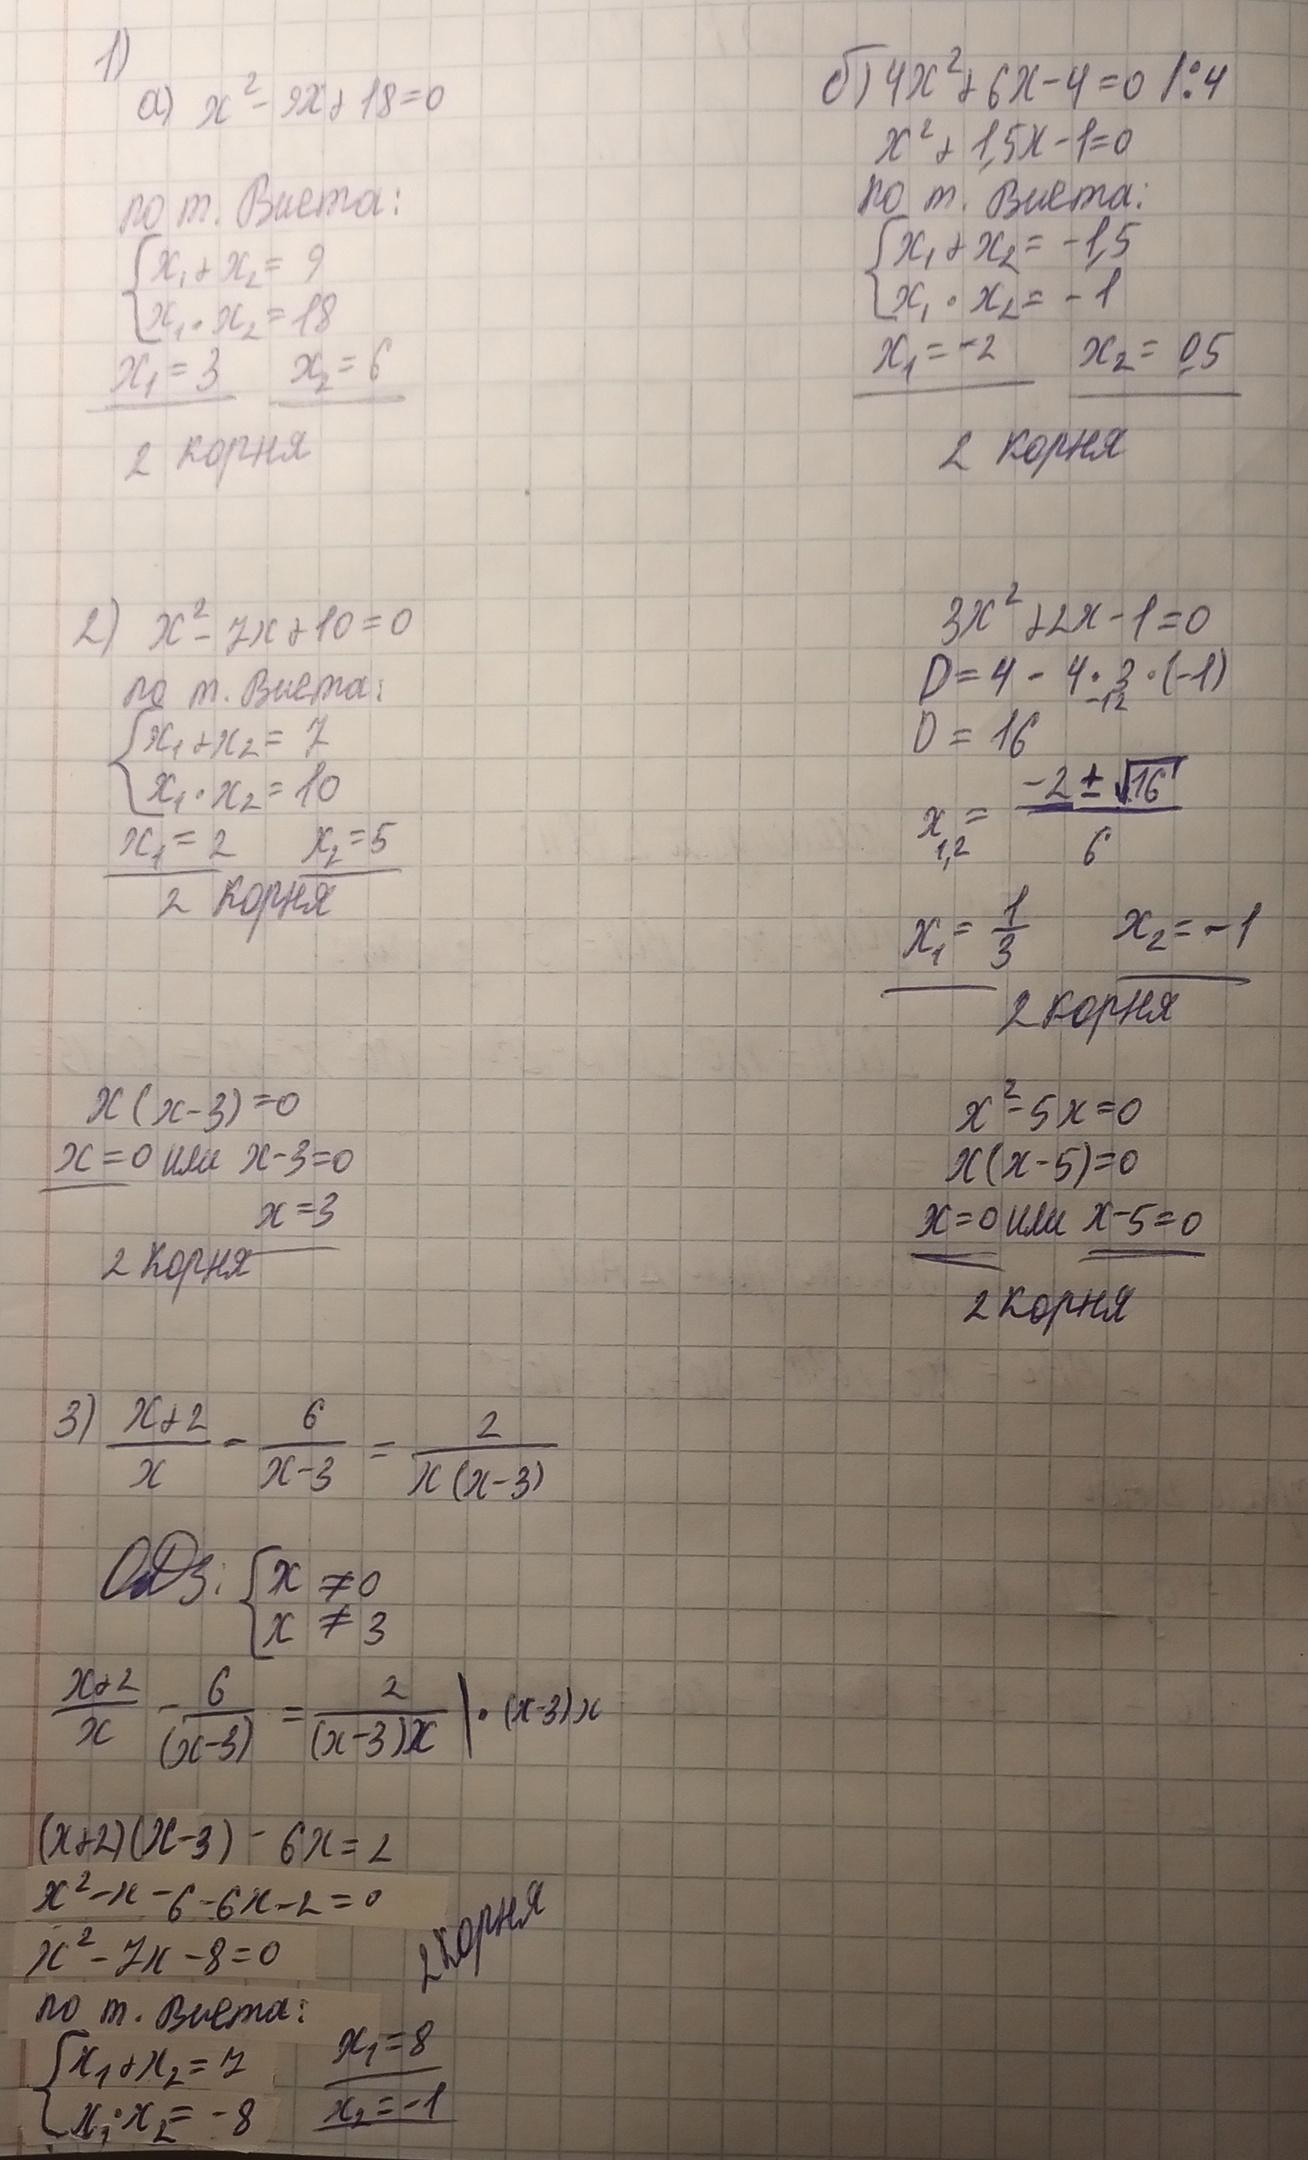 1)
а) x² - 9x + 18 = 0
по т. Виета:
{ x₁ + x₂ = 9
x₁ · x₂ = 18
x₁ = 3 x₂ = 6
2 корня
б) 4x² + 6x - 4 = 0 |:4
x² + 1,5x - 1 = 0
по т. Виета:
{ x₁ + x₂ = -1,5
x₁ · x₂ = -1
x₁ = -2 x₂ = 0,5
2 корня
2) x² - 7x + 10 = 0
по т. Виета:
{ x₁ + x₂ = 7
x₁ · x₂ = 10
x₁ = 2 x₂ = 5
2 корня
3x² + 2x - 1 = 0
D = 4 - 4 · 3 · (-1)
-12
D = 16
x₁,₂ = (-2 ± √16) / 6
x₁ = 1/3 x₂ = -1
2 корня
x(x-3) = 0
x = 0 или x-3 = 0
x = 3
2 корня
x² - 5x = 0
x(x-5) = 0
x = 0 или x-5 = 0
2 корня
3) (x+2)/x - 6/(x-3) = 2/(x(x-3))
ОДЗ: { x ≠ 0
x ≠ 3
(x+2)/x - 6/(x-3) = 2/((x-3)x) | · (x-3)x
(x+2)(x-3) - 6x = 2
x² - x - 6 - 6x - 2 = 0
x² - 7x - 8 = 0
по т. Виета:
{ x₁ + x₂ = 7
x₁ · x₂ = -8
x₁ = 8
x₂ = -1
2 корня